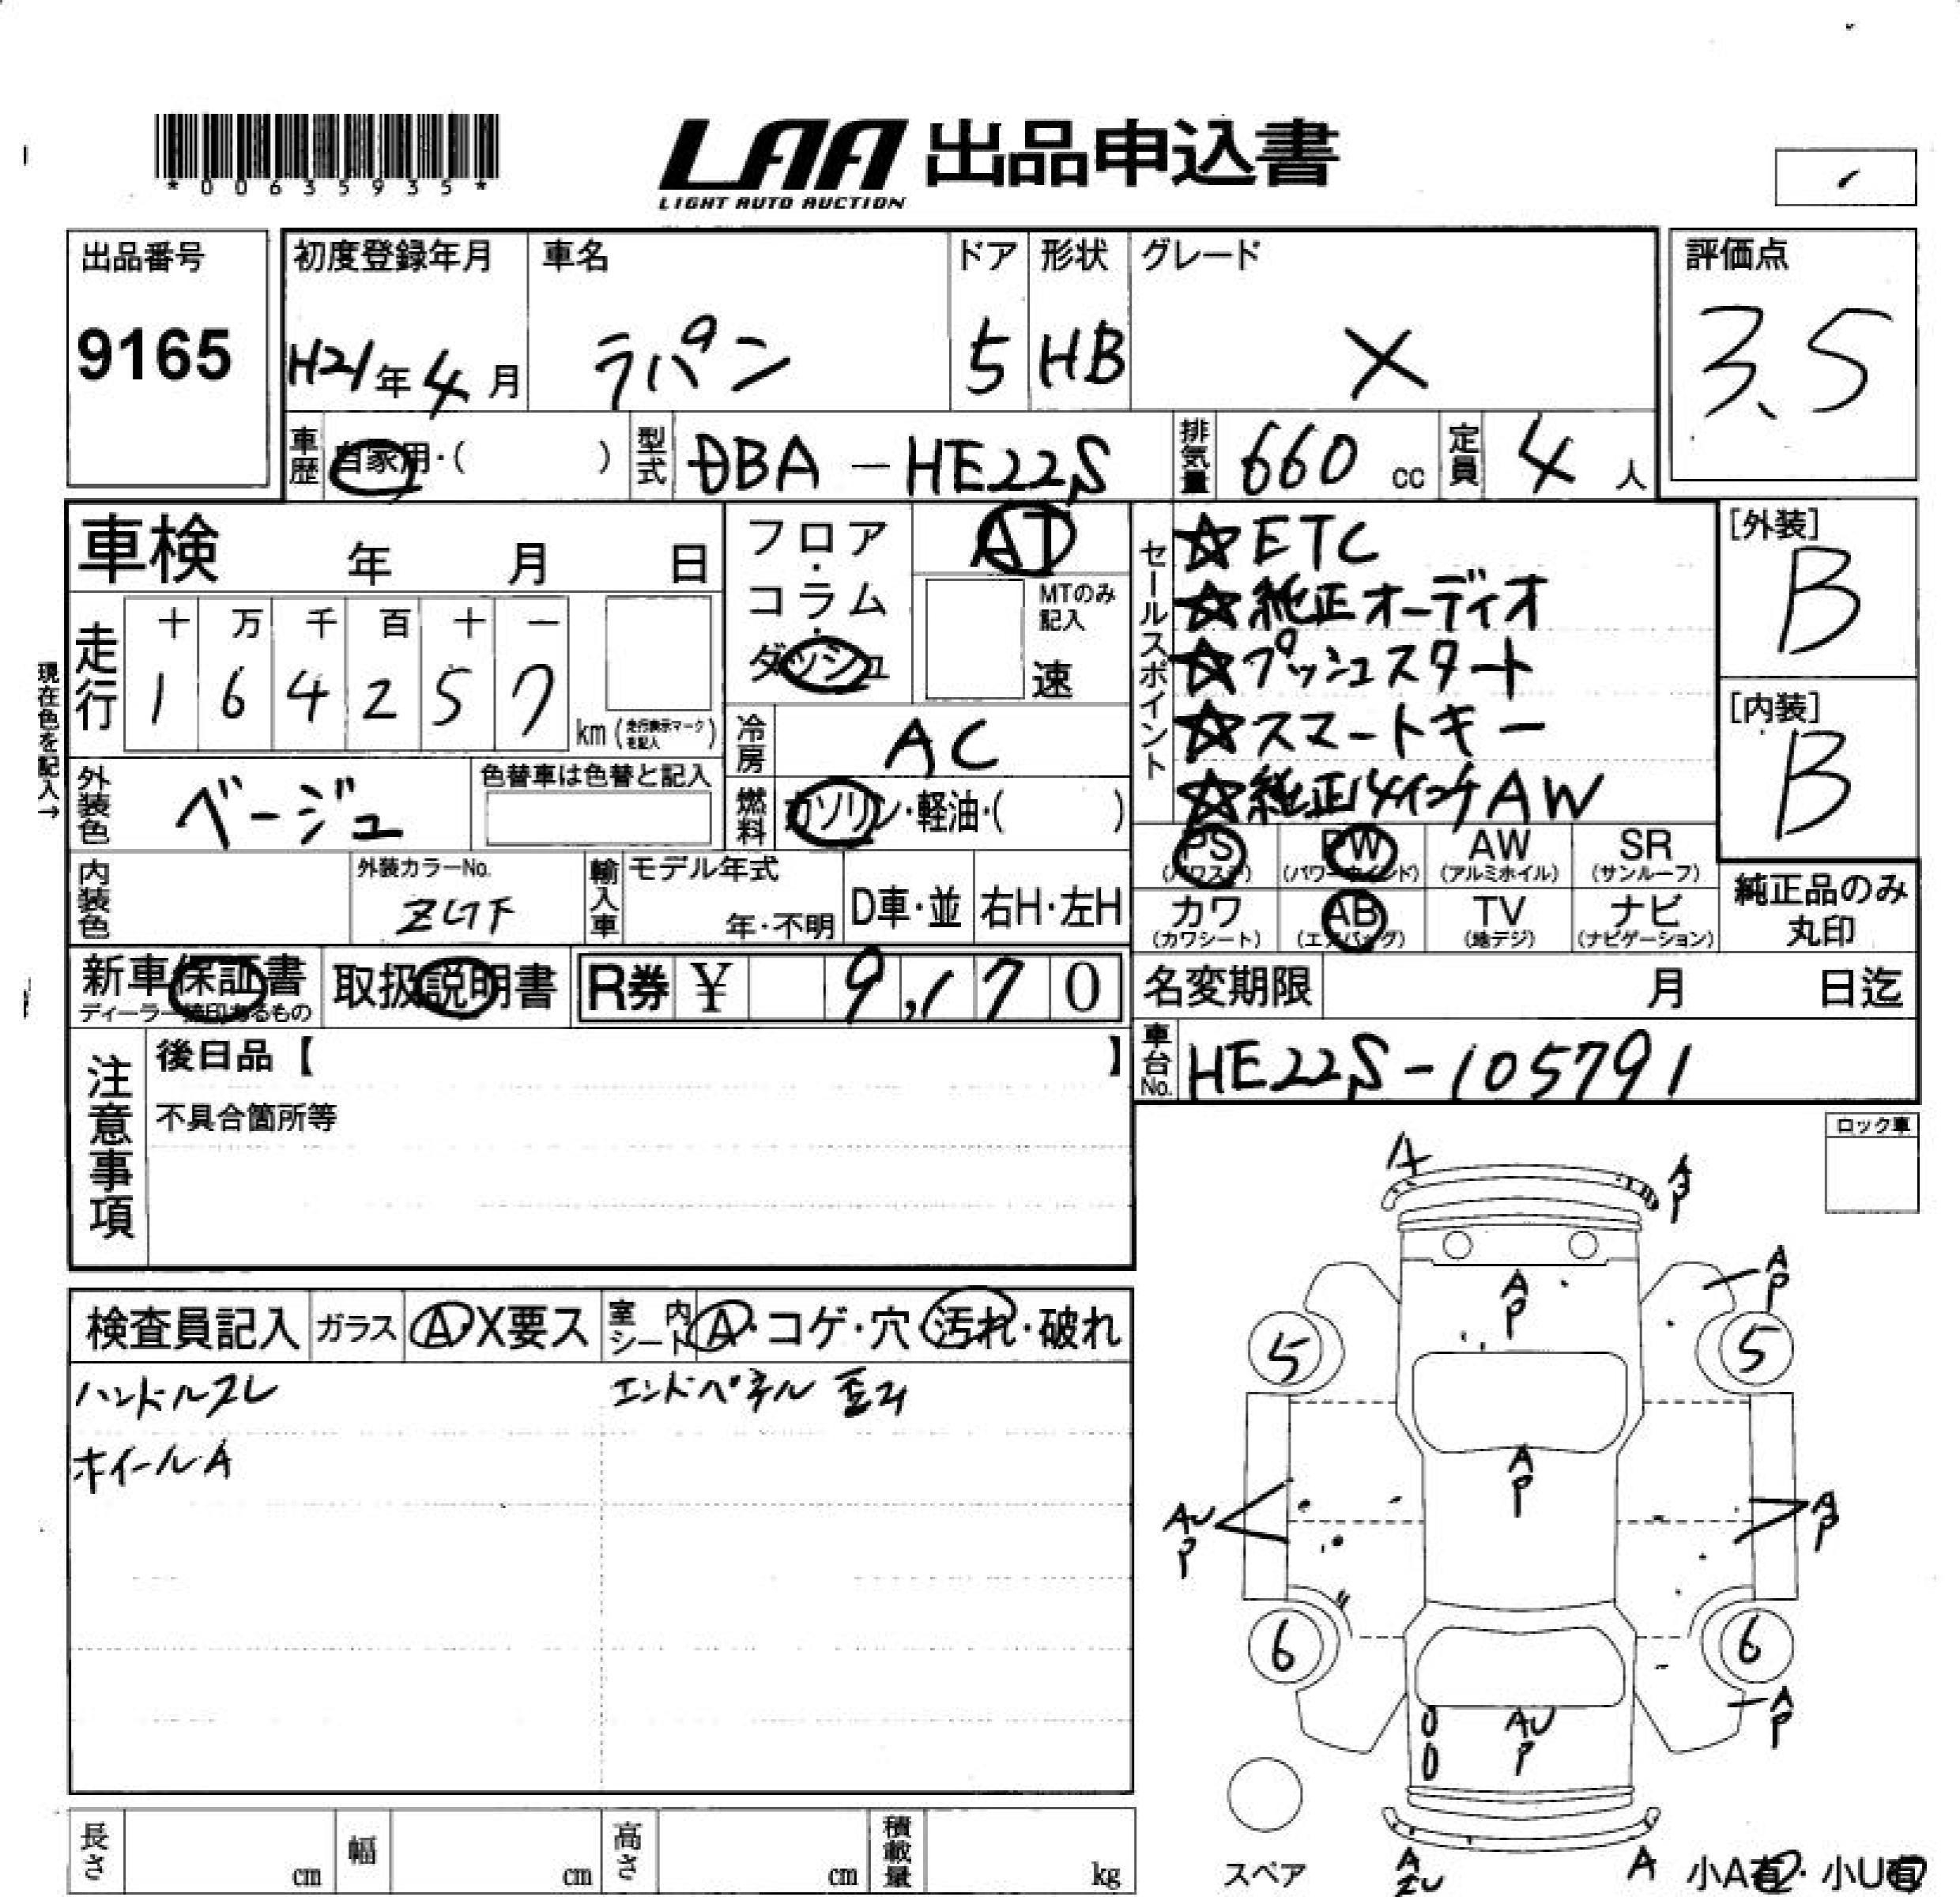 *00635935*
LAA 出品申込書
LIGHT AUTO AUCTION
出品番号
9165
初度登録年月
H21年4月
車名
ラパン
ドア
5
形状
HB
グレード
X
評価点
3.5
車歴
自家用・( )
型式
DBA-HE22S
排気量
660 cc
定員
4 人
車検 年 月 日
フロア・コラム・ダッシュ
AT
MTのみ記入
速
セールスポイント
☆ETC
☆純正オーディオ
☆プッシュスタート
☆スマートキー
☆純正14インチAW
[外装]
B
[内装]
B
現在色を記入→
走行
十 万 千 百 十 一
1 6 4 2 5 7
km(走行表示マークを記入)
冷房
AC
外装色
ベージュ
色替車は色替と記入
燃料
ガソリン・軽油・( )
PS (パワステ)
PW (パワーウインド)
AW (アルミホイル)
SR (サンルーフ)
カワ (カワシート)
AB (エアバッグ)
TV (地デジ)
ナビ (ナビゲーション)
純正品のみ丸印
内装色
外装カラーNo.
ZGF
輸入車
モデル年式
年・不明
D車・並
右H・左H
新車保証書
ディーラー捺印あるもの
取扱説明書
R券 ¥ 9,170
名変期限 月 日迄
車台No.
HE22S-105791
注意事項
後日品【 】
不具合箇所等
ロック車
検査員記入
ガラス
A・X要ス
室内シート
A・コゲ・穴・汚れ・破れ
ハンドルスレ
エンドパネル 歪み
ホイールA
A
A
P
A
P
A
P
5
5
A
P
AU
P
A
P
6
6
A
P
U
U
AU
P
スペア
A
A
小A有・小U有
長さ cm
幅 cm
高さ cm
積載量 kg